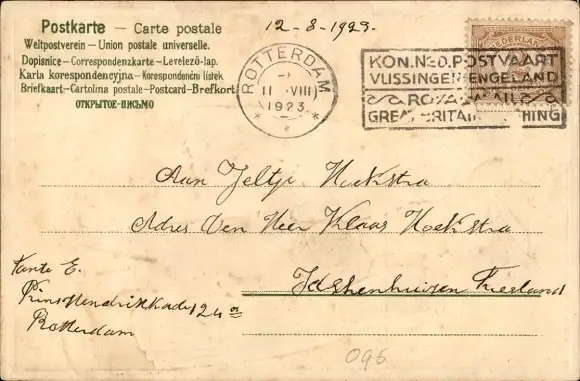 Postkarte – Carte postale
Weltpostverein – Union postale universelle.
Dopisnice – Correspondenzkarte – Levelező-lap.
Karta korespondencyjna – Korespondenční lístek.
Briefkaart – Cartolina postale – Postcard – Brefkort
ОТКРЫТОЕ ПИСЬМО
12-8-1923.
NEDERLAND
ROTTERDAM
11 VIII
1923
KON. NED. POSTVAART
VLISSINGEN ENGELAND
ROYAL MAIL
GREAT BRITAIN
Aan Jeltje Hoekstra
Adres Den Heer Klaas Hoekstra
Idskenhuizen Friesland
Tante E.
Prins Hendrikkade 124
Rotterdam
096